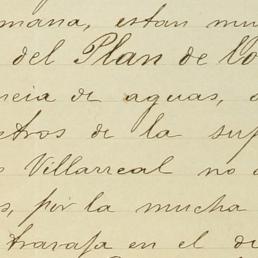 mana, estan mu
del Plan de lo
ncia de aguas,
etros de la sup
Villarreal no
s, por la mucha
travaja en el de